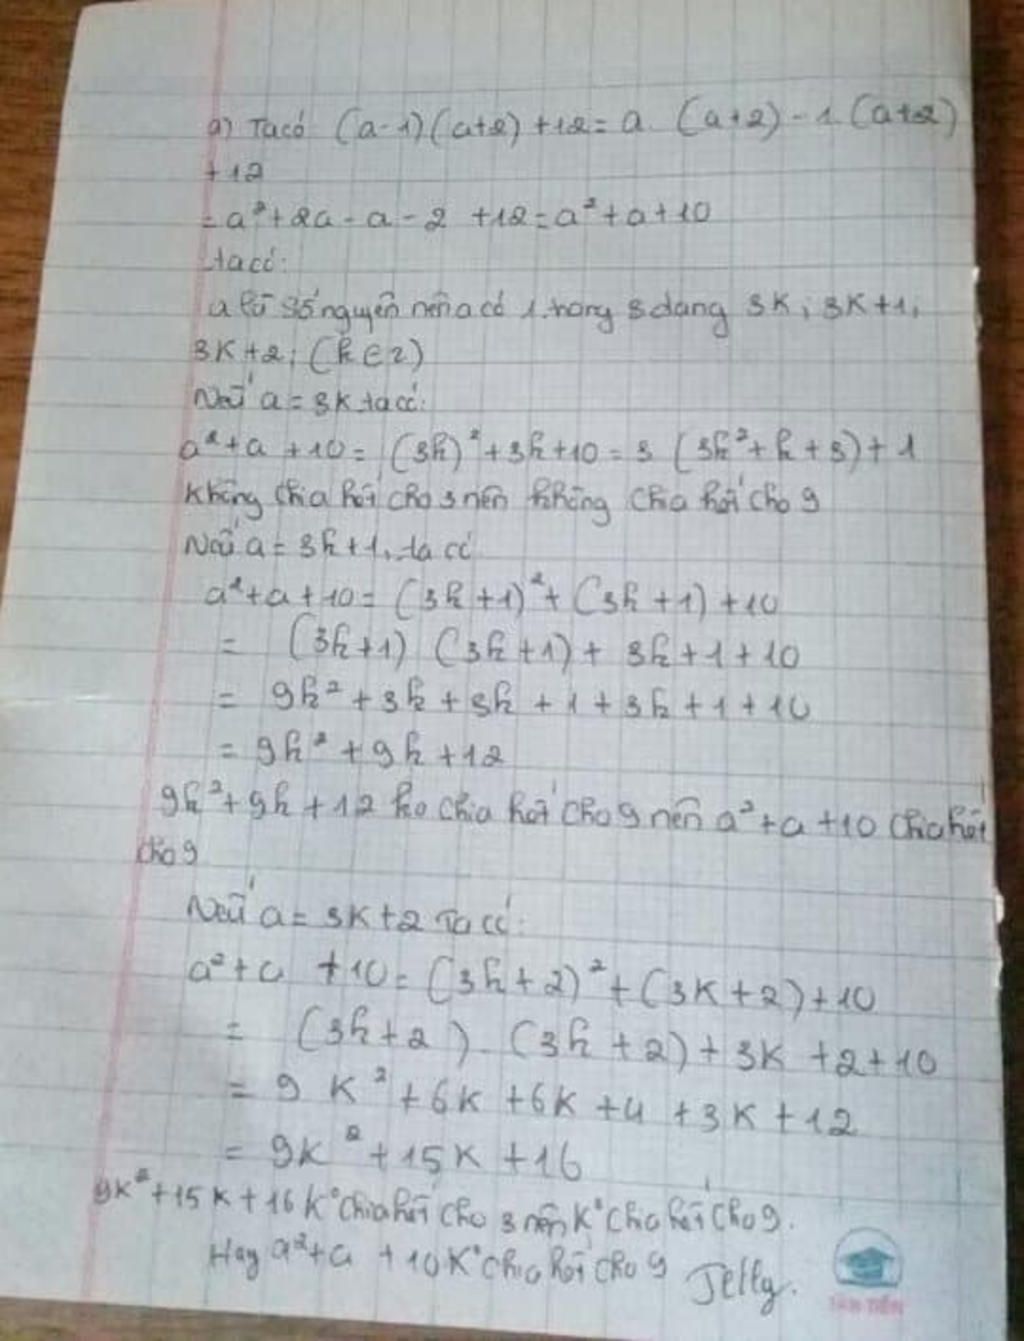 a) Ta có (a-1)(a+2)+12=a.(a+2)-1.(a+2)
+12
=a²+2a-a-2+12=a²+a+10
ta có:
a là số nguyên nên a có 1 trong 3 dạng 3K; 3K+1;
3K+2; (k∈Z)
Nếu a=3K ta có:
a²+a+10=(3k)²+3k+10=3(3k²+k+3)+1
Không chia hết cho 3 nên không chia hết cho 9
Nếu a=3k+1, ta có
a²+a+10=(3k+1)²+(3k+1)+10
= (3k+1)(3k+1)+3k+1+10
= 9k²+3k+3k+1+3k+1+10
= 9k²+9k+12
9k²+9k+12 ko chia hết cho 9 nên a²+a+10 chia hết
cho 9
Nếu a=3K+2 Ta có:
a²+a+10=(3k+2)²+(3K+2)+10
= (3k+2).(3k+2)+3K+2+10
= 9K²+6K+6K+4+3K+12
= 9K²+15K+16
9K²+15K+16 K° chia hết cho 3 nên K° chia hết cho 9.
Hay a²+a+10 K° chia hết cho 9 Jelly.